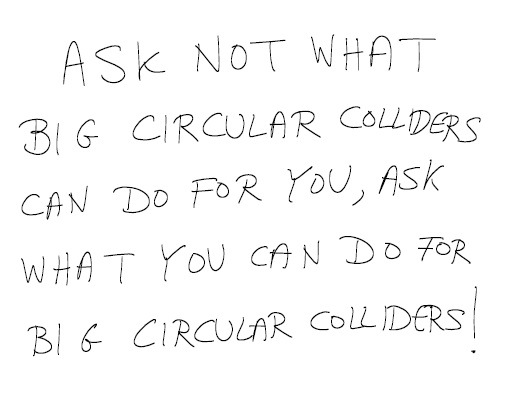 ASK NOT WHAT
BIG CIRCULAR COLLIDERS
CAN DO FOR YOU, ASK
WHAT YOU CAN DO FOR
BIG CIRCULAR COLLIDERS!